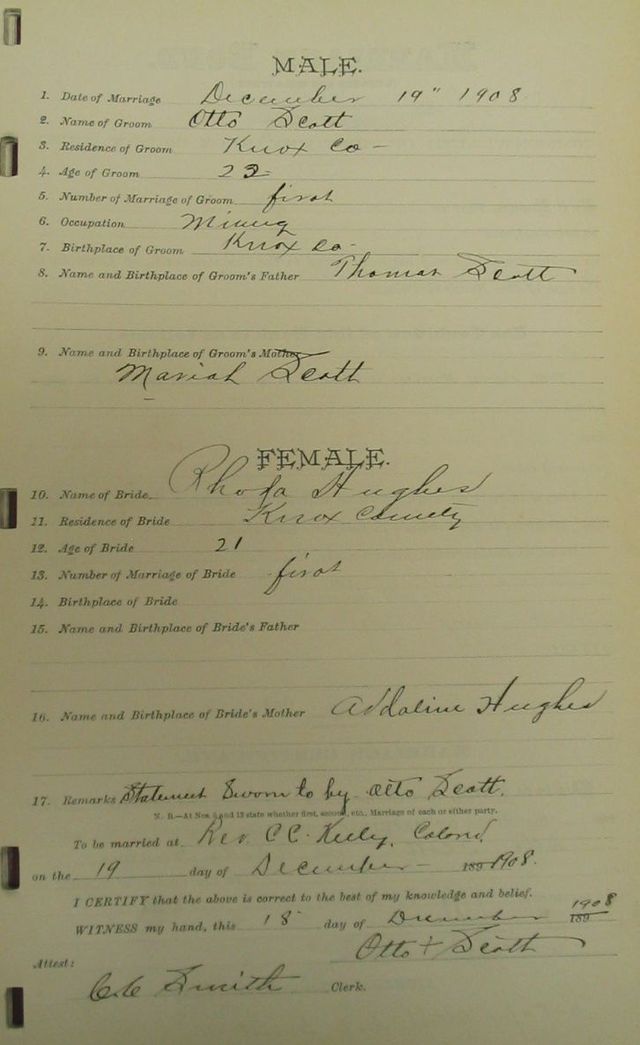 MALE.
1. Date of Marriage December 19" 1908
2. Name of Groom Otto Scott
3. Residence of Groom Knox Co -
4. Age of Groom 22
5. Number of Marriage of Groom first
6. Occupation Mining
7. Birthplace of Groom Knox Co -
8. Name and Birthplace of Groom's Father Thomas Scott
9. Name and Birthplace of Groom's Mother
Mariah Scott
FEMALE.
10. Name of Bride Rhoda Hughes
11. Residence of Bride Knox County
12. Age of Bride 21
13. Number of Marriage of Bride first
14. Birthplace of Bride
15. Name and Birthplace of Bride's Father
16. Name and Birthplace of Bride's Mother Addaline Hughes
17. Remarks Statement Sworn to by Otto Scott.
N. B.—At Nos. 5 and 13 state whether first, second, etc., Marriage of each or either party.
To be married at Rev. C C.
on the 19 day of December - 189 1908.
I CERTIFY that the above is correct to the best of my knowledge and belief.
WITNESS my hand, this 18 day of December 189 1908
Otto + Scott
Attest:
Smith Clerk.